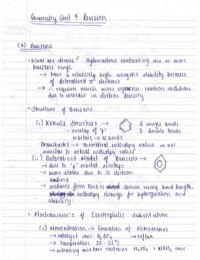 Chemistry Unit 4 Revision
(a) Benzene
• What are arenes? Hydrocarbons containing one or more
benzene rings
→ have a relatively high energetic stability because
of delocalised π electrons
→ requires much more vigorous reaction conditions
due to increase in electron density
• Structure of Benzene
(i) Kekulé structure →
3 single bonds
3 double bonds
- overlap of 'p'
orbitals → π bonds
Drawbacks →
(ii) Delocalised Model of Benzene →
→ due to 'p' orbital overlaps
→ more stable due to π electron
→ evidence from this is shown using bond length,
enthalpy changes for hydrogenation and
stability
• Mechanisms of Electrophilic substitution
(i) Nitrobenzene → formation of Nitrobenzene
→ catalyst conc. H₂SO₄ → reflux
→ temperature 50 - 55°C
→ nitrating mixture contains H₂SO₄ + HNO₃ conc